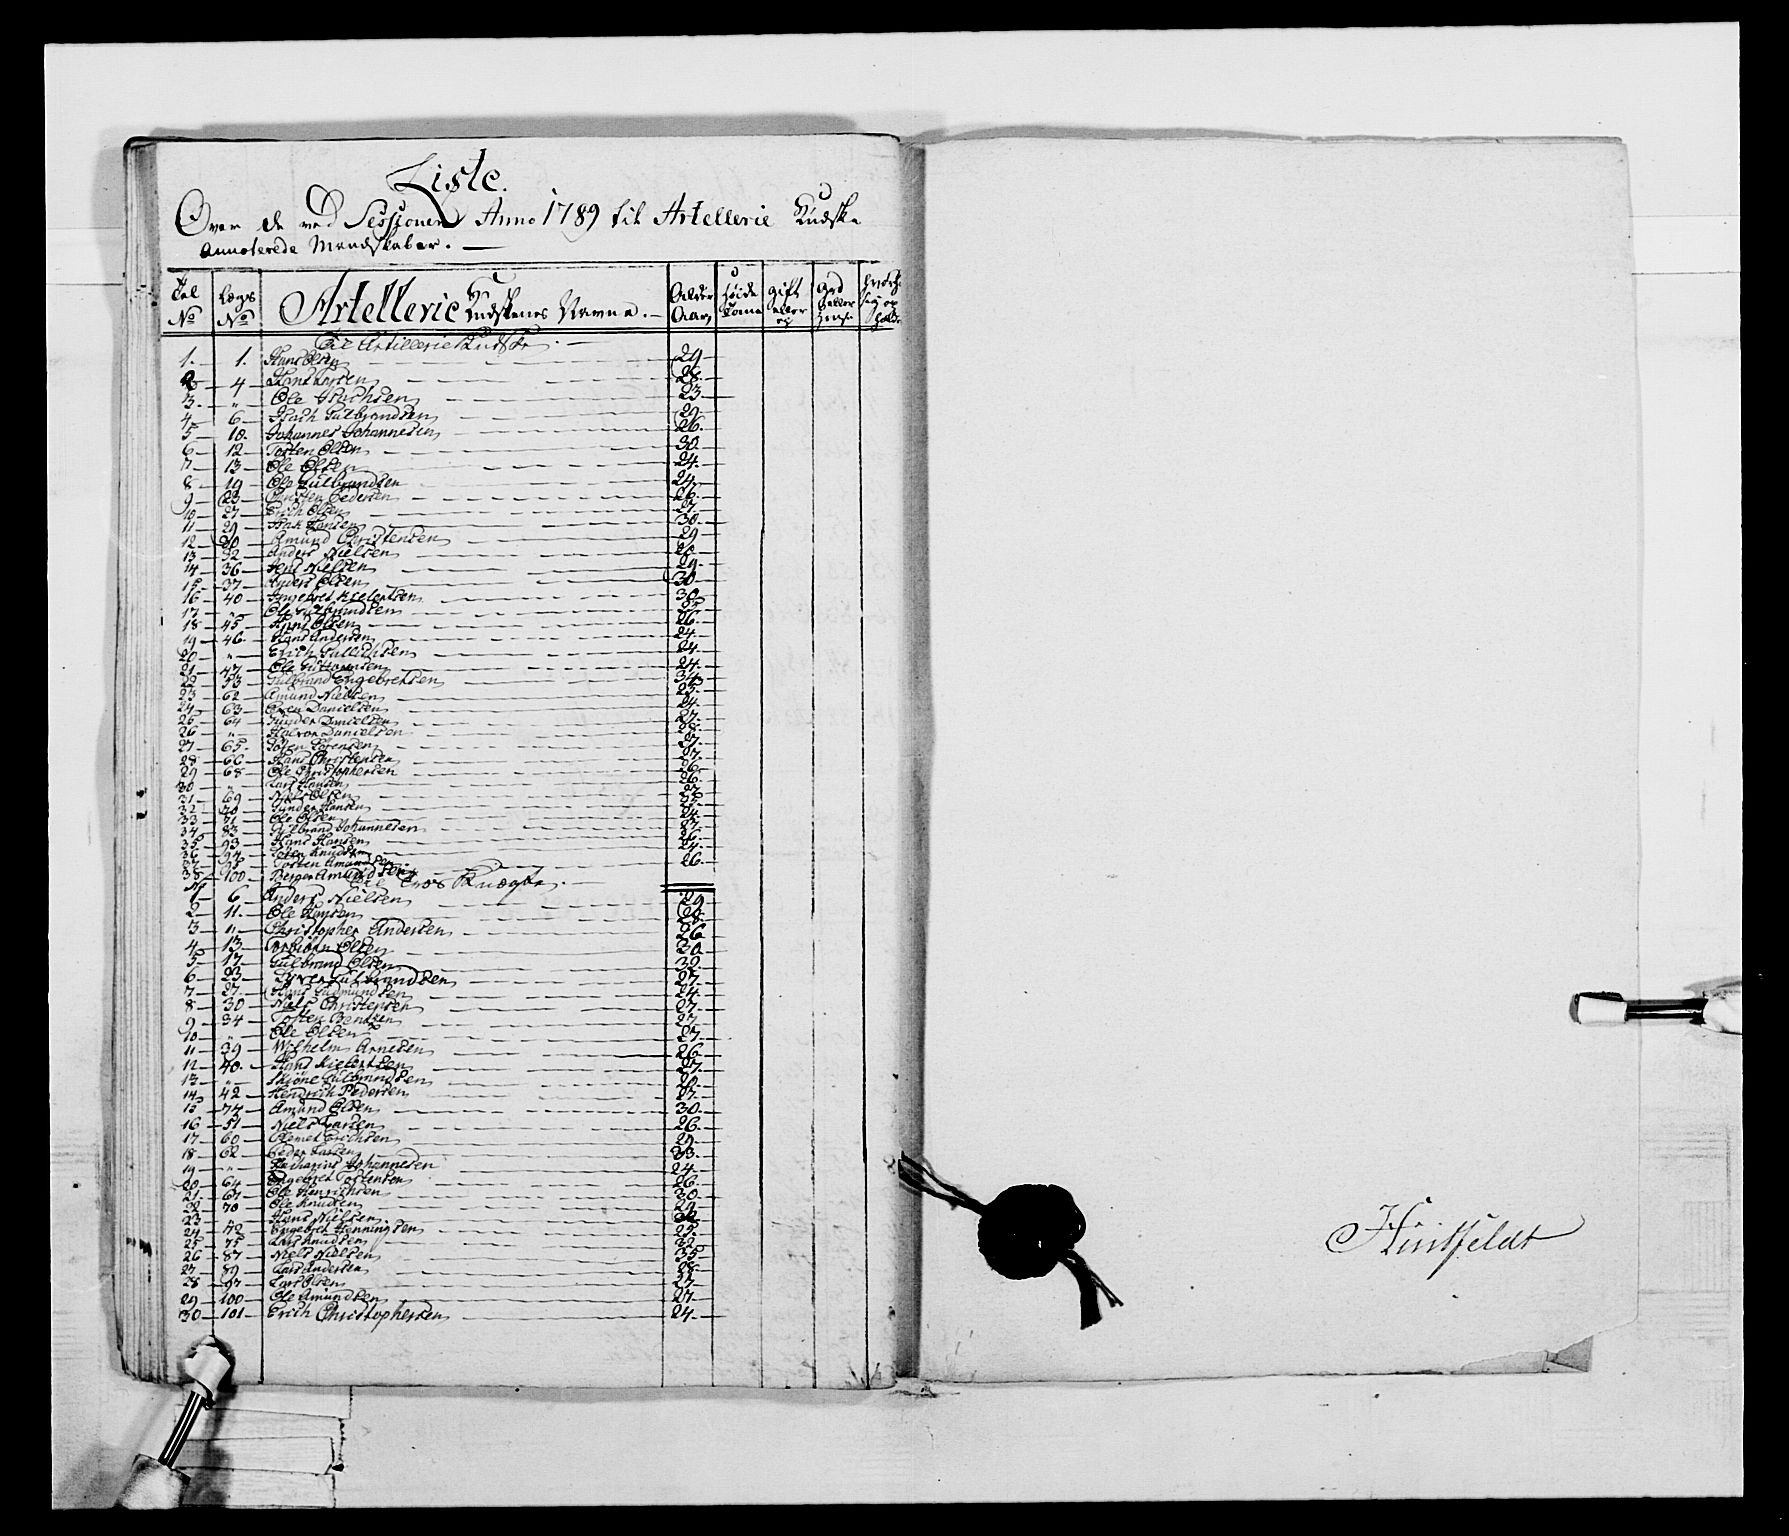 Liste.
Over de ved Sessionen Anno 1789 til Artellerie Kudske
Annoterede Mandskaber. —
Tal No | Lægs No | Artellerie Kudskenes Navne. — | Alder Aar | Høide Tomme | gift eller ej
Til Artillerie Kudske. —
1. 1. Hans Olsen 29
2 4 Hans Larsen 28
3. " Ole Isachsen 23
4 6 Isach Gulbrandsen 29
5 10. Johannes Johannesen 26.
6 12 Tosten Olsen 30
7 13 Ole Olsen 24.
8 19 Ole Gulbrandsen 24
9 23 Christen Pedersen 26.
10 27 Erich Olsen 27
11 29 Isak Hansen 30.
12 30 Amund Christensen 29
13 32 Anders Nielsen 28
14 36 Jens Nielsen 29.
15 37 Anders Olsen 30
16 40 Ingebret Kielertsen 30.
17 " Ole Gulbrandsen 25
18 45 Hans Olsen 26
19 46. Hans Andersen 24.
20 " Erich Gullichsen 24
21 47 Ole Guttormsen 24
22 53 Gulbrand Engebretsen 34
23 62 Amund Nielsen 23.
24 63 Even Danielsen 24
26 64 Gunder Danielsen 27.
26 " Halvor Danielsen 28.
27 65. Søren Sørensen 27.
28 66 Hans Christensen 27
29 68 Ole Christophersen 26
30 " Lars Hansen 26
31 69 Niels Olsen 27
32 70 Gunder Hansen 25
33 71 Ole Olsen 24
34 83 Gulbrand Johannesen 27
35 93 Hans Hansen 26
36 94 Søren Knudsen 24
37 95 Tosten Amundsen 26
38 100 Berger Amundsen
Til Tros Knægte. —
1 6 Anders Nielsen 29
2 11. Ole Hansen 28
3 " Christopher Andersen 26
4 13 Torbiørn Olsen 30
5 17 Gulbrand Olsen 39
6 23 Syver Gulbrandsen 27
7 27 Hans Gudmundsen 24
8 30 Niels Christensen 27.
9 34 Tosten Bentsen 27
10 " Ole Olsen 27
11 39 Wilhelm Arnesen 26
12 40. Hans Kielertsen 27
13 " Skiøne Gulbrandsen 28
14 42 Hendrich Pedersen 27.
15 74 Amund Olsen 30
16 51 Niels Larsen 26
17 60 Clemet Erichsen 29.
18 62 Peder Larsen 33.
19 " Zacharias Johannesen 24
20 64 Engebret Tostensen 26
21 67 Ole Henrichsen 30
22 70 Ole Knudsen 29
23 " Hans Nielsen
24 72 Engebret Henningsen 25.
25 75 Lars Knudsen 32
26 87 Niels Nielsen 35
27 89 Lars Andersen 28
28 97 Lars Olsen 27
29 100 Ole Amundsen 27
30 101 Erich Christophersen 24.
Huitfeldt